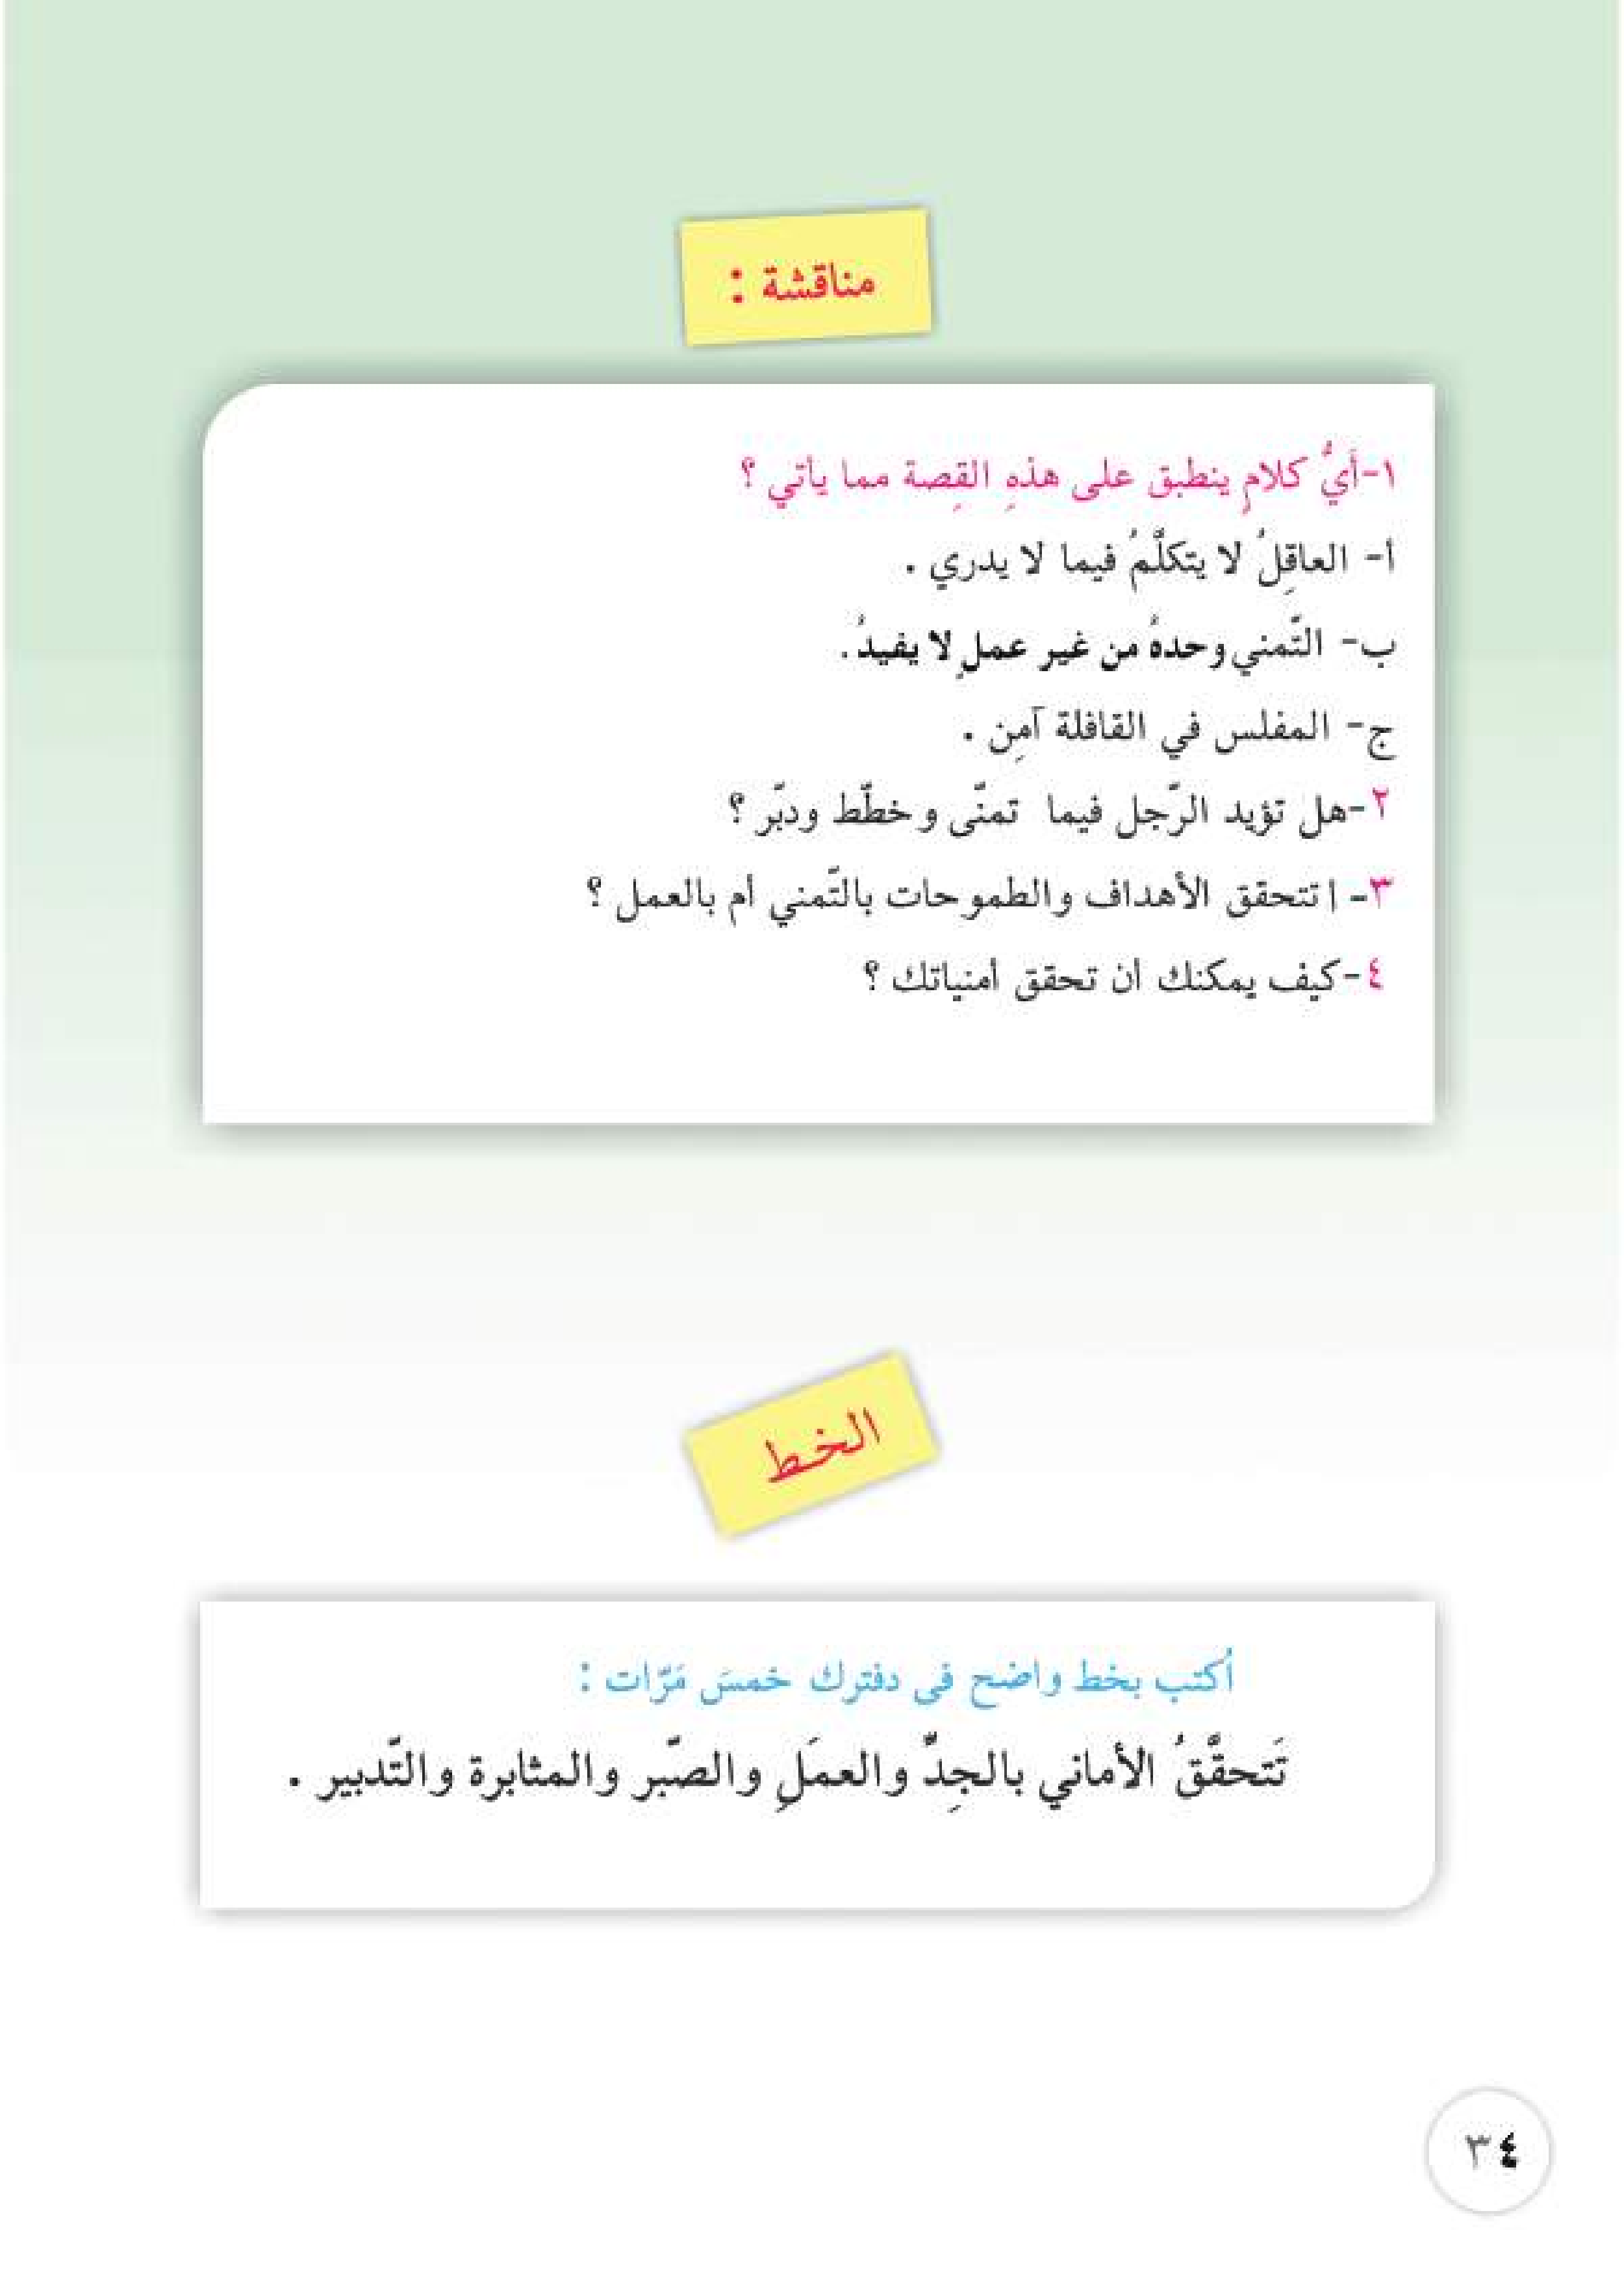 مناقشة :
١-أَيُّ كلامٍ ينطبق على هذهِ القِصة مما يأتي ؟
أ- العاقِلُ لا يتكلَّمُ فيما لا يدري .
ب- التّمني وحدهُ من غير عملٍ لا يفيدُ.
ج- المفلس في القافلة آمِن .
٢-هل تؤيد الرّجل فيما تمنّى وخطّط ودبّر ؟
٣- اتتحقق الأهداف والطموحات بالتّمني أم بالعمل ؟
٤-كيف يمكنك ان تحقق أمنياتك ؟
الخط
اُكتب بخط واضح فى دفترك خمسَ مَرّات :
تَتحقَّقُ الأماني بالجِدِّ والعمَلِ والصّبر والمثابرة والتّدبير .
٣٤